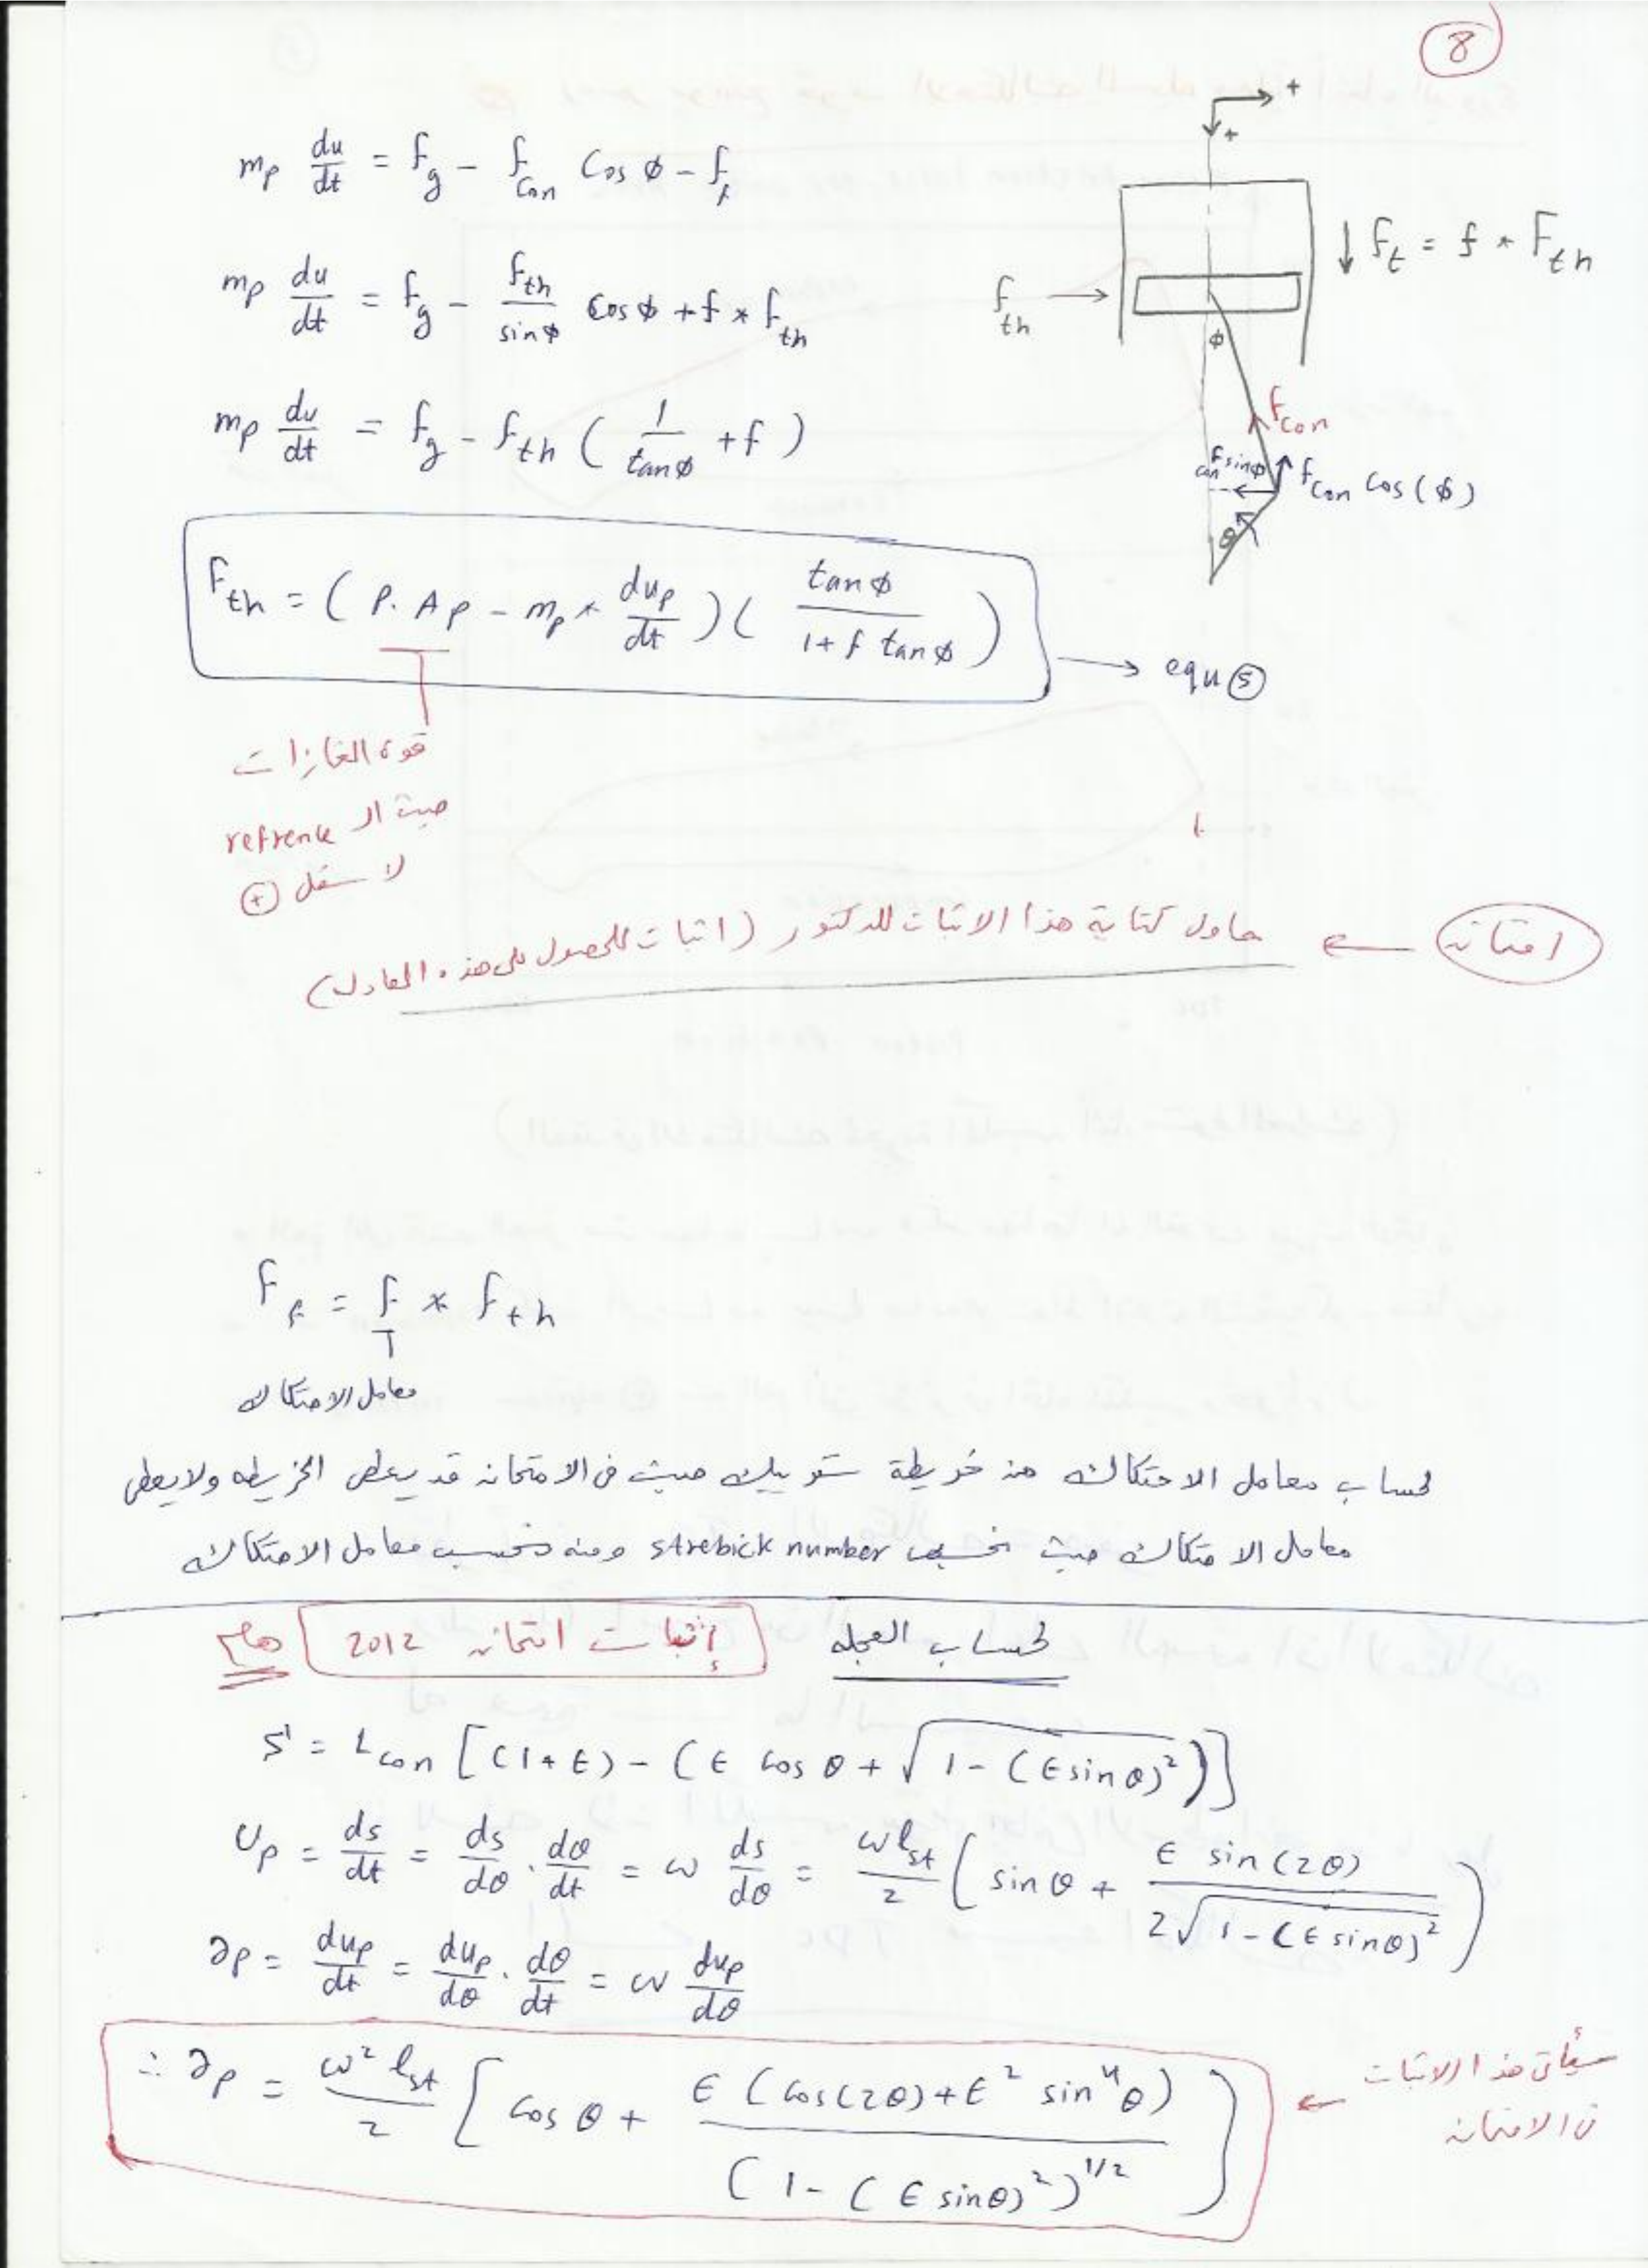 8
m_p du/dt = f_g - f_con Cos φ - f_f
m_p du/dt = f_g - f_th/sinφ cos φ + f * f_th
m_p du/dt = f_g - f_th ( 1/tanφ + f )
F_th = ( P. A_p - m_p * du_p/dt ) ( tanφ / 1+ f tanφ ) → equ ⑤
+
+
↓ f_t = f * F_th
f_th →
φ
f_con
f_con sinφ
f_con cos(φ)
θ
قوة الغازات
حيث ال refrence
لا سفل ⊕
امتحانه ← حاول كتابة هذا الاثبات للدكتور (اثبات للحصول على هذه المعادله)
F_f = f * f_th
معامل الاحتكاك
لحساب معامل الاحتكاك من خريطة ستريبك حيث فى الامتحانه قد يعطى الخريطه ولايعطى
معامل الاحتكاك حيث نحسب strebick number ومنه نحسب معامل الاحتكاك
لحساب العجله إثبات امتحانه 2012 هام
S = L_con [ (1+ε) - (ε cos θ + √(1 - (ε sinθ)²)) ]
U_p = ds/dt = ds/dθ . dθ/dt = ω ds/dθ = ωl_st/2 ( sinθ + ε sin(2θ) / 2√(1-(ε sinθ)²) )
a_p = du_p/dt = du_p/dθ . dθ/dt = ω du_p/dθ
∴ a_p = ω² l_st/2 [ cos θ + ε (cos(2θ)+ε² sin⁴θ) / (1-(ε sinθ)²)^1/2 ]
← سيأتى هذا الاثبات
فى الامتحانه